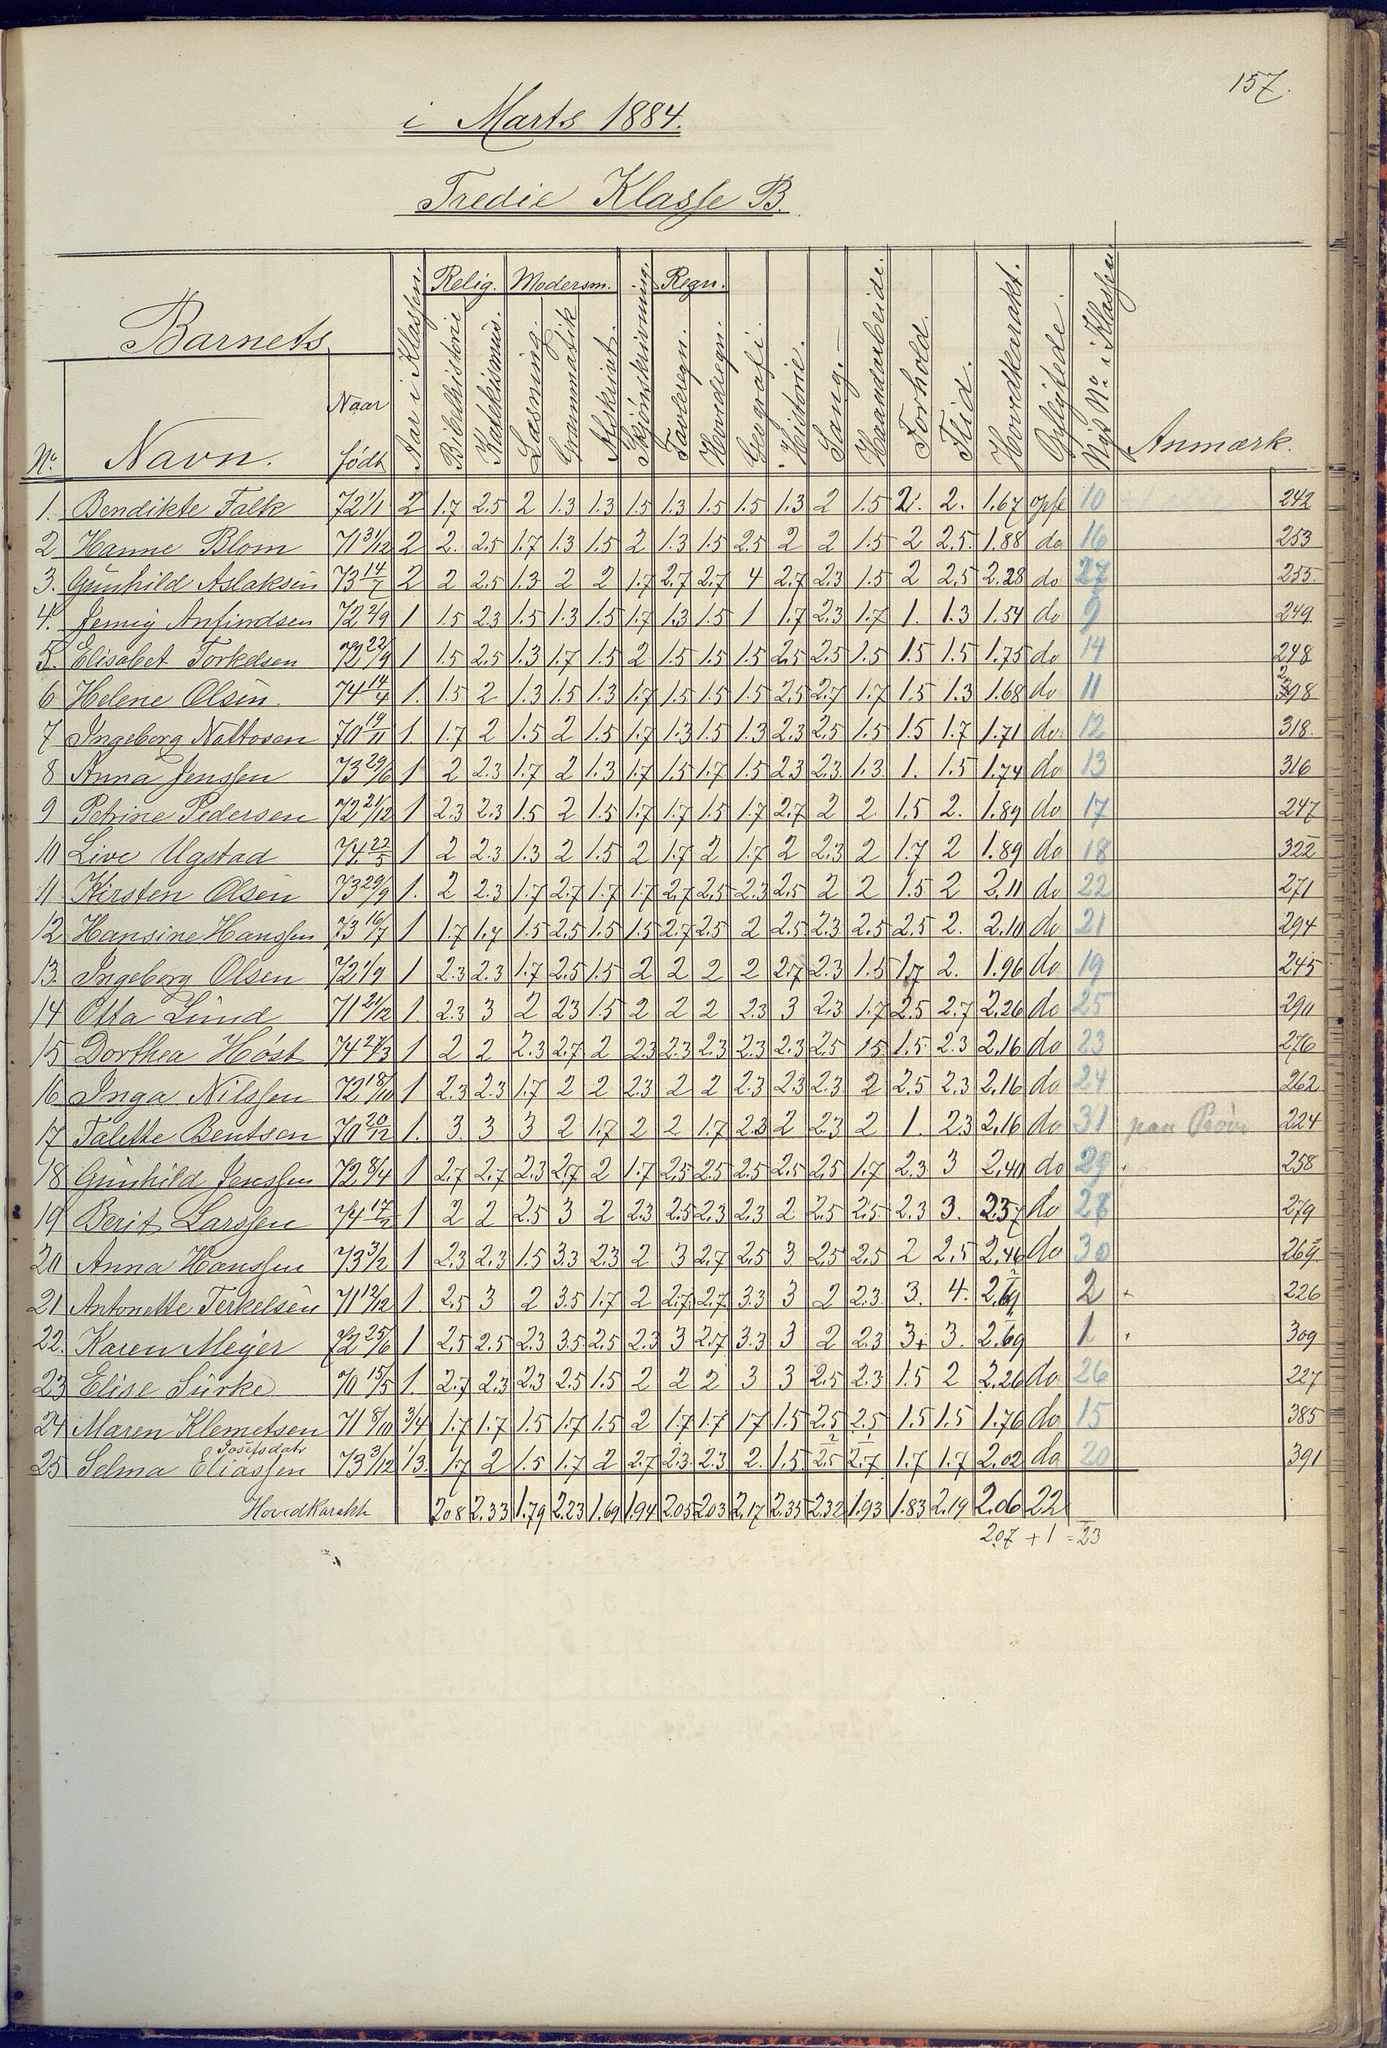 157.
i Marts 1884.
Tredie Klasse B.
Barnets
No. Navn. Naar født Aar i Klassen. Relig. Bibelhistorie Katekismus. Modersm. Læsning. Grammatik Afskrivt. Skjönskrivning. Regn. Tavleregn. Hovedregn. Geografi. Historie. Sang. Haandarbeide. Forhold. Flid. Hovedkarakt. Opflyttede. Nyt No i Klassen Anmærk.
1. Bendikte Falk 72 1/1 2 1.7 2.5 2 1.3 1.3 1.5 1.3 1.5 1.5 1.3 2 1.5 2. 2. 1.67 opf 10 242
2 Hanne Blom 71 31/12 2 2. 2.5 1.7 1.3 1.5 2 1.3 1.5 2.5 2 2 1.5 2 2.5. 1.88 do 16 253
3. Gunhild Aslaksen 73 14/7 2 2 2.5 1.3 2 2 1.7 2.7 2.7 4 2.7 2.3 1.5 2 2.5 2.28 do 27 255.
4. Jenny Anfindsen 72 2/9 1 1.5 2.3 1.5 1.3 1.5 1.7 1.3 1.5 1 1.7 2.3 1.7 1. 1.3 1.54 do 9 249
5. Elisabet Torkelsen 72 22/9 1 1.5 2.5 1.3 1.7 1.5 2 1.5 1.5 1.5 2.5 2.5 1.5 1.5 1.5 1.75 do 14 248
6 Helene Olsen. 74 14/4 1. 1.5 2 1.3 1.5 1.3 1.7 1.5 1.5 1.5 2.5 2.7 1.7 1.5 1.3 1.68 do 11 298
7 Ingeborg Nottosen 70 19/11 1. 1.7 2 1.5 2 1.5 1.7 1.3 1.5 1.3 2.3 2.5 1.5 1.5 1.7 1.71 do 12 318.
8 Anna Jenssen 73 29/6 1 2 2.3 1.7 2 1.3 1.7 1.5 1.7 1.5 2.3 2.3 1.3. 1. 1.5 1.74 do 13 316
9 Petrine Pedersen 72 21/12 1 2.3 2.3 1.5 2 1.5 1.7 1.7 1.5 1.7 2.7 2 2 1.5. 2. 1.89 do 17 247
10 Live Ugstad 74 22/5 1 2 2.3 1.3 2 1.5 2 1.7 2 1.7 2 2.3 2 1.7 2 1.89 do 18 322
11 Kirsten Olsen 73 29/9 1. 2 2.3 1.7 2.7 1.7 1.7 2.7 2.5 2.3 2.5 2 2 1.5 2 2.11 do 22 271
12 Hansine Hanssen 73 16/7 1 1.7 1.7 1.5 2.5 1.5 1.5 2.7 2.5 2 2.5 2.3 2.5 2.5 2. 2.10 do 21 294
13. Ingeborg Olsen 72 1/9 1 2.3 2.3 1.7 2.5 1.5 2 2 2 2 2.7 2.3 1.5 1.7 2. 1.96 do 19 245
14 Otta Lund 71 21/12 1. 2.3 3 2 2.3 1.5 2 2 2 2.3 3 2.3 1.7 2.5 2.7 2.26 do 25 290
15 Dorthea Høst 74 27/3 1 2 2 2.3 2.7 2 2.3 2.3 2.3 2.3 2.3 2.5 1.5 1.5. 2.3 2.16 do 23 276
16 Inga Nilssen 72 18/10 1 2.3 2.3 1.7 2 2 2.3 2 2 2.3 2.3 2.3 2 2.5 2.3 2.16 do 24 262
17 Talette Bentsen 70 20/12 1. 3. 3 3 2 1.7 2 2 1.7 2.3 2 2.3 2 1. 2.3 2.16 do 31 paa Prøve 224
18 Gunhild Jenssen 72 8/4 1 2.7 2.7 2.3 2.7 2 1.7 2.5 2.5 2.5 2.5 2.5 1.7 2.3 3 2.40 do 29 258
19 Berit Larssen 74 17/2 1 2 2 2.5 3 2 2.3 2.5 2.3 2.3 2 2.5 2.5 2.3 3. 2.37 do 28 279
20 Anna Hanssen 73 3/2 1 2.3 2.3 1.5 3.3 2.3 2 3 2.7 2.5 3 2.5 2.5 2 2.5 2.46 do 30 269
21 Antonette Terkelsen 71 12/12 1. 2.5 3 2 3.5 1.7 2 2.7 2.7 3.3 3 2 2.3 3. 4. 2.69 2 226
22. Karen Meyer 72 25/6 1 2.5 2.5 2.3 3.5 2.5 2.3 3 2.7 3.3 3 2 2.3 3+ 3. 2.69 1 309
23 Elise Surke 70 15/5 1. 2.7 2.3 2.3 2.5 1.5 2 2 2 3 3 2.5 2.3 1.5 2 2.26 do 26 227
24 Maren Klemetsen 71 8/10 3/4 1.7 1.7 1.5 1.7 1.5 2 1.7 1.7 1.7 1.5 2.5 2.5 1.5 1.5 1.76 do 15 385
Josefsdatr
25 Selma Eliassen 73 3/12 1/3. 1.7 2 1.5 1.7 2 2.7 2.3. 2.3 2. 1.5 2.5 2.7 1.7 1.7 2.02 do 20 391
Hovedkarakt 2.08 2.33 1.79 2.23 1.69 1.94 2.05 2.03 2.17 2.35 2.32 1.93 1.83 2.19 2.06 22
2.07 + 1 = 23